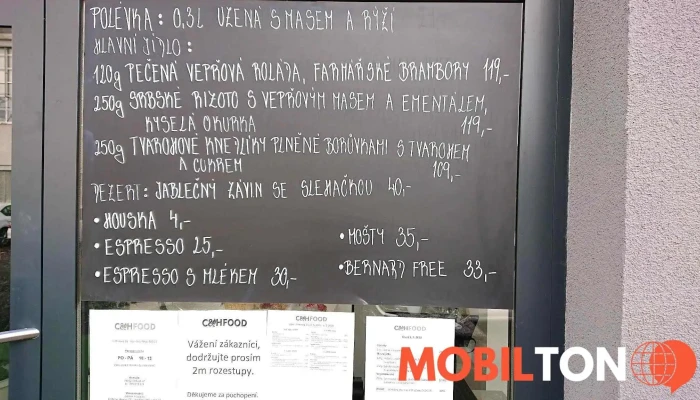 POLÉVKA: 0,3L UZENÁ S MASEM A RÝŽÍ
HLAVNÍ JÍDLO:
120g PEČENÁ VEPŘOVÁ ROLÁDA, FARMÁŘSKÉ BRAMBORY 119,-
250g SRBSKÉ RIZOTO S VEPŘOVÝM MASEM A EMENTÁLEM,
KYSELÁ OKURKA 119,-
250g TVAROHOVÉ KNEDLÍKY PLNĚNÉ BORŮVKAMI S TVAROHEM
A CUKREM 109,-
DEZERT: JABLEČNÝ ZÁVIN SE ŠLEHAČKOU 40,-
• HOUSKA 4,-
• ESPRESSO 25,-
• ESPRESSO S MLÉKEM 30,-
• MOŠTY 35,-
• BERNARD FREE 33,-
C&HFOOD
PO - PÁ
C&HFOOD
Vážení zákazníci,
dodržujte prosím
2m rozestupy.
Děkujeme za pochopení.
C&HFOOD
C&HFOOD
MOBILTON